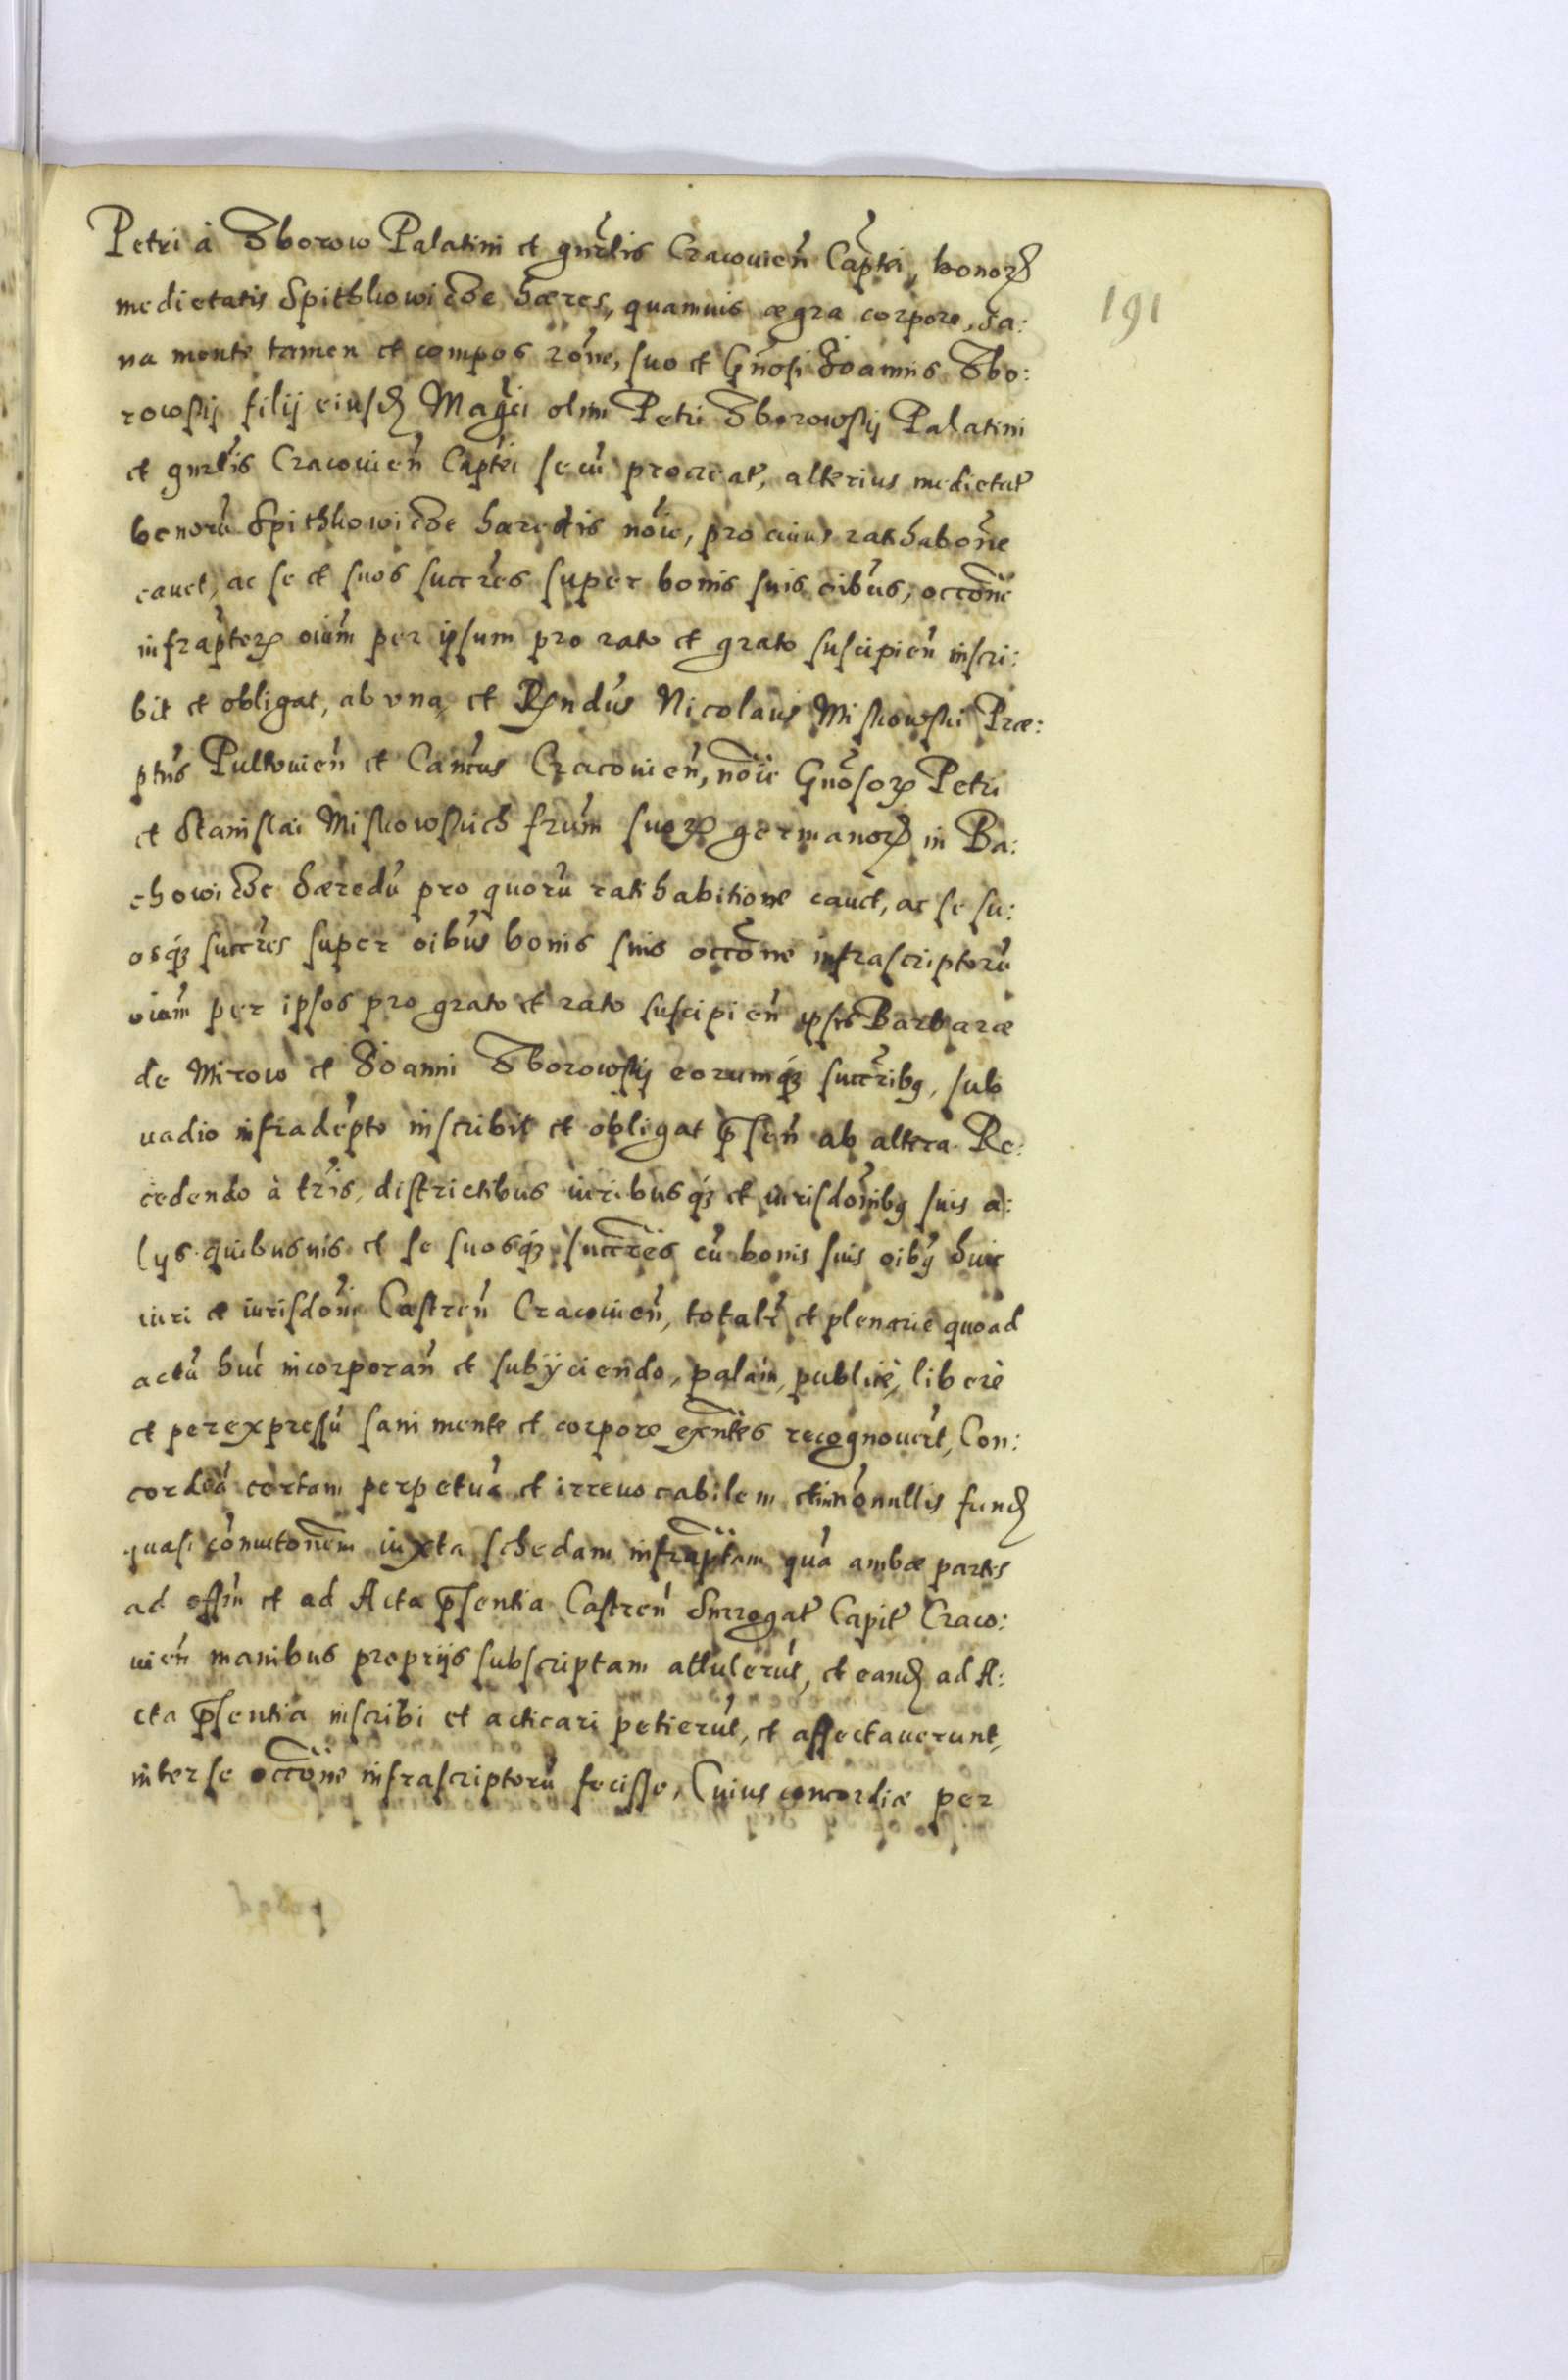 Petri à Zborow Palatini et gnrlis Cracovien Captei, bonorꝝ
191
medietatis Spithkowicze hæres, quamuis ægra corpore, sa:
na mente tamen et compos rone, suo et Gnosi Joannis Zbo:
rowskij filij eiusdꝫ Magci olim Petri Zborowskij Palatini
et gnrlis Cracouien Captei secu procreat, alterius medietat
bonorũ Spithkowicze hæredis noie, pro cuius rathabone
cauet, ac se et suos succres super bonis suis oibus, occone
infrapterꝝ oium per ipsum pro rato et grato suscipien inscri:
bit et obligat, ab vna, et Rndus Nicolaus Miskowski Præ:
ptus Pultouien et Cantus Cracouien, noie Gnosorꝝ Petri
et Stanislai Miskowskich frum suorꝝ germanorꝝ in Ba:
chowicze hæredũ pro quorũ rathabitione cauet, ac se su:
osqꝫ succres super oibus bonis suis occone infrascriptorũ
oium per ipsos pro grato et rato suscipien ipsis Barbaræ
de Mirow et Joanni Zborowskij eorumqꝫ succribꝯ, sub
vadio infradepto inscribit et obligat pnsen ab altera. Re:
cedendo à tris, districtibus iuribusqꝫ et iurisdonibꝯ suis a:
lys quibusuis et se suosqꝫ succres cũ bonis suis oibꝯ huic
iuri et iurisdoni Castren Cracouien, totalr et plenarie quoad
actũ huc incorporan et subijciendo, palam, publicè, liberè
et per expressũ sani mente et corpore exntes recognouert, Con:
cordiã certam perpetuã et irreuocabilem etim nonullis fundꝫ
quasi comutonem iuxta schedam infraptam quã ambæ partes
ad offm et ad Acta pnsentia Castren Surrogat Capit Craco:
uien manibus proprijs subscriptam attulerũt, et eandꝫ ad A:
cta pnsentia inscribi et acticari petierũt, et affectauerunt,
inter se occone infrascriptorũ fecisse, Cuius concordiæ per